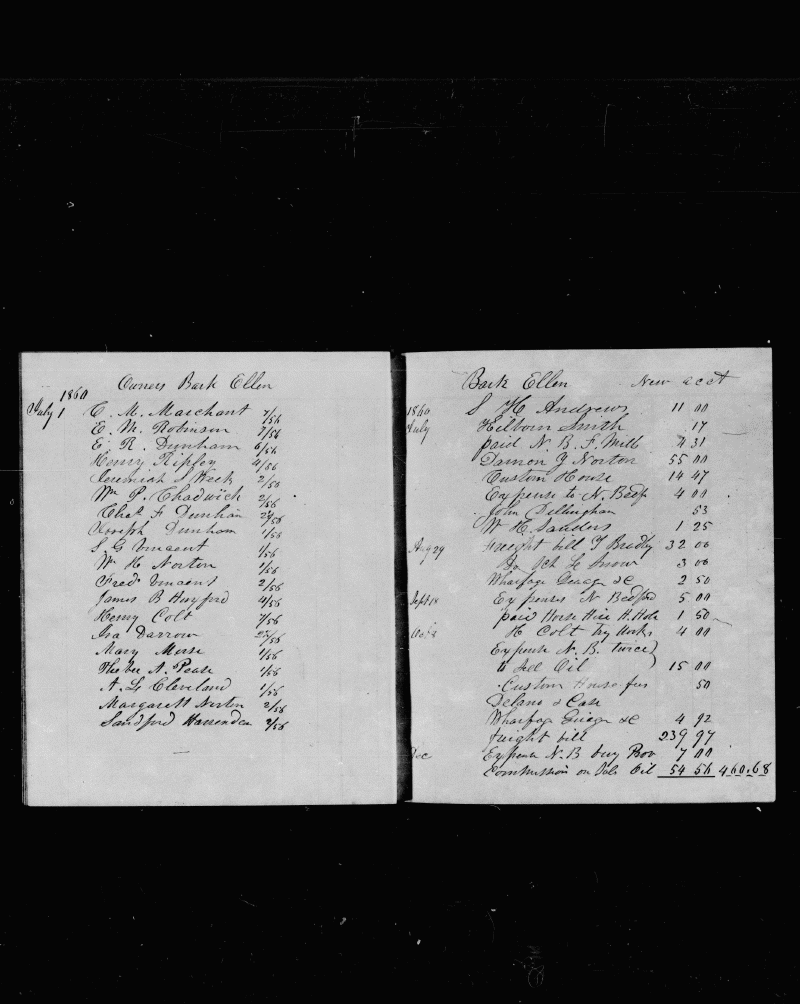 Owners Bark Ellen
1860
July 1 C. M. Marchant 7/56
E. M. Robinson 7/56
E. R. Dunham 6/56
Henry Ripley 4/56
Jeremiah S Week 2/56
Wm P. Chadwick 2/56
Chas F Dunham 2/56
Joseph Dunham 1/56
S. G Vincent 1/56
Wm H Norton 1/56
Fred Vincent 2/56
James B Huxford 4/56
Henry Colt 7/56
Ira Darrow /56
Mary Morse 1/56
Phebe A. Pease 1/56
A. L Cleveland 1/56
Margarett Norton 2/56
Sandford 2/56
Bark Ellen New acct
1860 S H Andrews 11 00
July Hilborn Smith 17
paid N. B. F. Mill 4 31
Damon Y Norton 55 00
Custom House 14 47
Expense to N. Bedf 4 00
John Dillingham 53
W H. Sanders 1 25
Aug 29 Freight bill T Bradley 32 00
Do Sch Le Snow 3 00
Wharfage Guage &c 2 50
Sept 18 Expenses N Bedford 5 00
paid Horse Hire H. Hole 1 50
Oct 8 H Colt Try Works 4 00
Expense N. B. twice
to sell Oil 15 00
Custom House fees 50
Delano & Case
Wharfage Guage &c 4 92
freight bill 239 97
Dec Expense N. B buy 7 00
Commission on Sale Oil 54 56 460.68